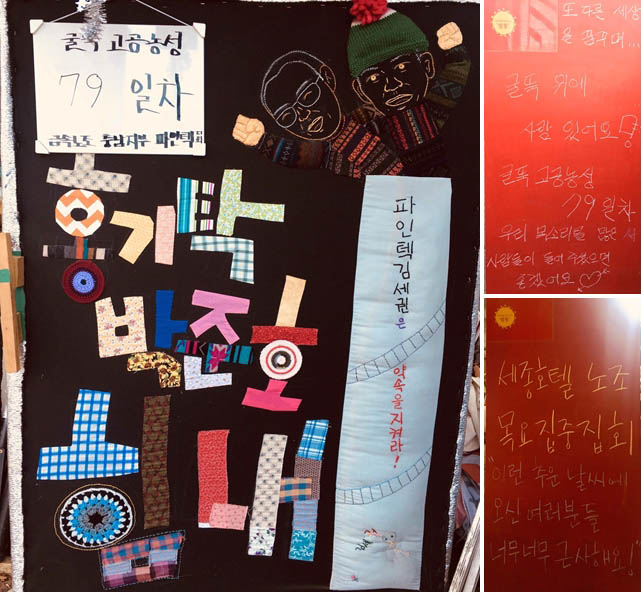 굴뚝 고공농성
79 일차
금속노조 충남지부 파인텍지회
홍기탁
박준호
힘내
파인텍 김세권은
약속을 지켜라!
또 다른 세상
을 꿈꾸며...
굴뚝 위에
사람 있어요
굴뚝 고공농성
79일차
우리 목소리를 많은
사람들이 들어 주셨으면
좋겠어요♡
세종호텔 노조
목요집중집회
"이런 추운 날씨에
오신 여러분들
너무너무 근사해요!"